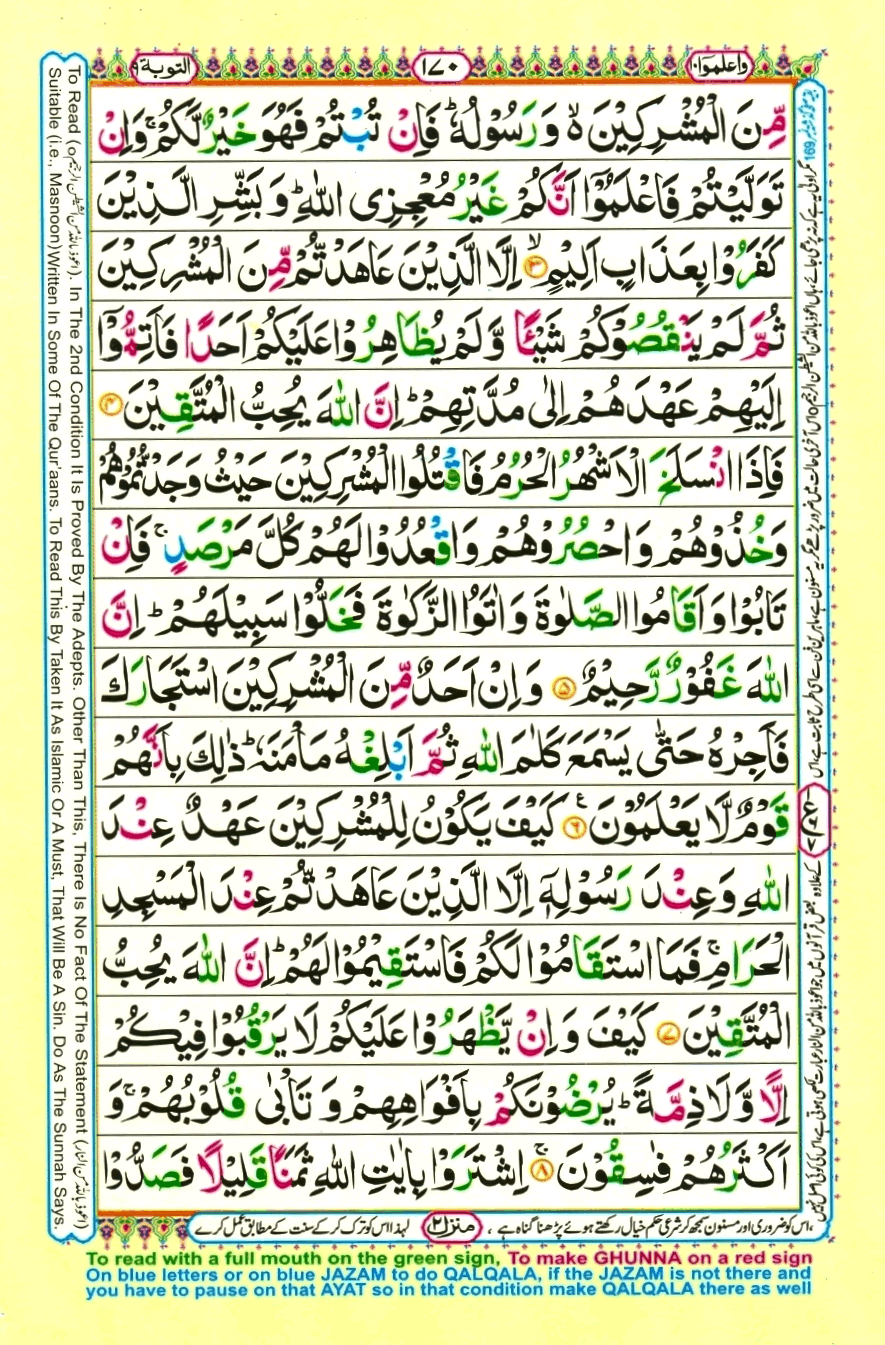 واعلموا١٠
١٧٠
التوبة٩
مِّنَ الْمُشْرِكِيْنَ ەۙ وَرَسُوْلُهٗ ؕ فَاِنْ تُبْتُمْ فَهُوَ خَيْرٌ لَّكُمْ ۚ وَاِنْ
تَوَلَّيْتُمْ فَاعْلَمُوْۤا اَنَّكُمْ غَيْرُ مُعْجِزِى اللّٰهِ ؕ وَ بَشِّرِ الَّذِيْنَ
كَفَرُوْا بِعَذَابٍ اَلِيْمٍ ۙ﴿۳﴾ اِلَّا الَّذِيْنَ عَاهَدْتُّمْ مِّنَ الْمُشْرِكِيْنَ
ثُمَّ لَمْ يَنْقُصُوْكُمْ شَيْئًا وَّ لَمْ يُظَاهِرُوْا عَلَيْكُمْ اَحَدًا فَاَتِمُّوْۤا
اِلَيْهِمْ عَهْدَهُمْ اِلٰى مُدَّتِهِمْ ؕ اِنَّ اللّٰهَ يُحِبُّ الْمُتَّقِيْنَ ﴿۴﴾
فَاِذَا انْسَلَخَ الْاَشْهُرُ الْحُرُمُ فَاقْتُلُوا الْمُشْرِكِيْنَ حَيْثُ وَجَدْتُّمُوْهُمْ
وَخُذُوْهُمْ وَاحْصُرُوْهُمْ وَاقْعُدُوْا لَهُمْ كُلَّ مَرْصَدٍ ۚ فَاِنْ
تَابُوْا وَ اَقَامُوا الصَّلٰوةَ وَ اٰتَوُا الزَّكٰوةَ فَخَلُّوْا سَبِيْلَهُمْ ؕ اِنَّ
اللّٰهَ غَفُوْرٌ رَّحِيْمٌ ﴿۵﴾ وَ اِنْ اَحَدٌ مِّنَ الْمُشْرِكِيْنَ اسْتَجَارَكَ
فَاَجِرْهُ حَتّٰى يَسْمَعَ كَلٰمَ اللّٰهِ ثُمَّ اَبْلِغْهُ مَاْمَنَهٗ ؕ ذٰلِكَ بِاَنَّهُمْ
قَوْمٌ لَّا يَعْلَمُوْنَ ﴿۶﴾ كَيْفَ يَكُوْنُ لِلْمُشْرِكِيْنَ عَهْدٌ عِنْدَ
اللّٰهِ وَعِنْدَ رَسُوْلِهٖۤ اِلَّا الَّذِيْنَ عَاهَدْتُّمْ عِنْدَ الْمَسْجِدِ
الْحَرَامِ ۚ فَمَا اسْتَقَامُوْا لَكُمْ فَاسْتَقِيْمُوْا لَهُمْ ؕ اِنَّ اللّٰهَ يُحِبُّ
الْمُتَّقِيْنَ ﴿۷﴾ كَيْفَ وَ اِنْ يَّظْهَرُوْا عَلَيْكُمْ لَا يَرْقُبُوْا فِيْكُمْ
اِلًّا وَّ لَا ذِمَّةً ؕ يُرْضُوْنَكُمْ بِاَفْوَاهِهِمْ وَ تَاْبٰى قُلُوْبُهُمْ ۚ وَ
اَكْثَرُهُمْ فٰسِقُوْنَ ۚ﴿۸﴾ اِشْتَرَوْا بِاٰيٰتِ اللّٰهِ ثَمَنًا قَلِيْلًا فَصَدُّوْا
To Read (اعوذ باللہ من الشیطٰن الرجیم). In The 2nd Condition It Is Proved By The Adepts. Other Than This, There Is No Fact Of The Statement (اعوذ باللہ من النار)
Suitable (i.e., Masnoon)Written In Some Of The Qur'aans. To Read This By Taken It As Islamic Or A Must, That Will Be A Sin. Do As The Sunnah Says.
،اس کو ضروری اور مسنون سمجھ کر شرعی حکم خیال رکھتے ہوئے پڑھنا گناہ ہے ،
منزل۲
لہذا اس کو ترک کرکے سنت کے مطابق عمل کرے
To read with a full mouth on the green sign, To make GHUNNA on a red sign
On blue letters or on blue JAZAM to do QALQALA, if the JAZAM is not there and
you have to pause on that AYAT so in that condition make QALQALA there as well